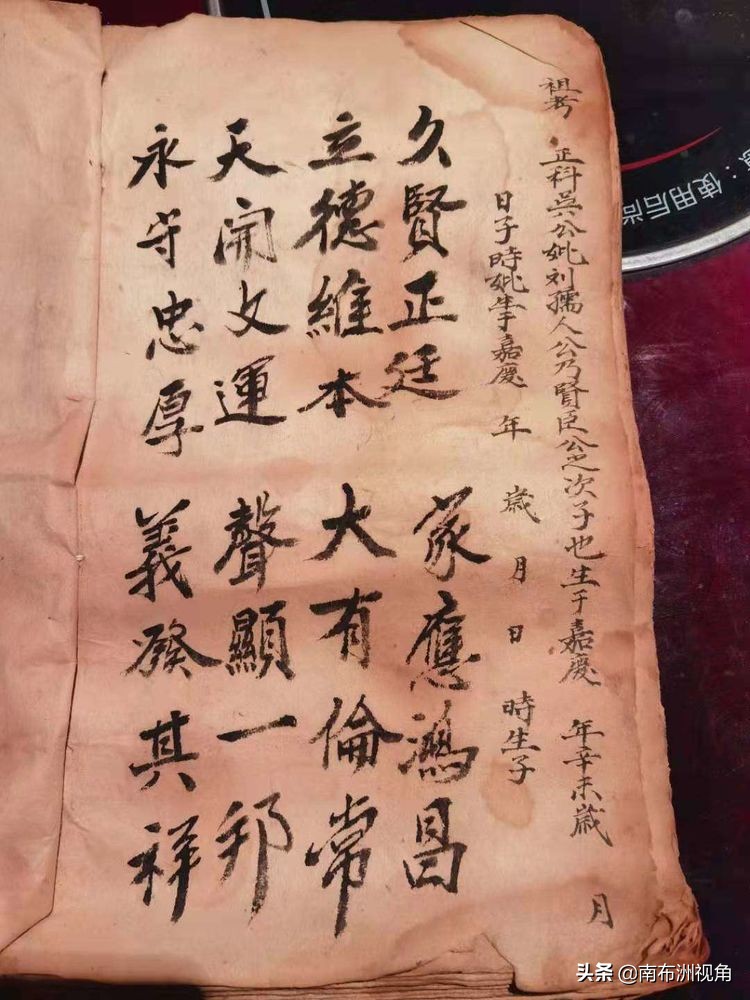 祖考 正科吳公妣刘孺人公乃賢臣公之次子也生于嘉慶 年辛未歲 月
日子時妣生于嘉慶 年 歲 月 日 時生子
久賢正廷 家應鴻昌
立德維本 大有倫常
天開文運 聲顯一邦
永守忠厚 義發其祥
：使用后尚
头条 @南布洲视角